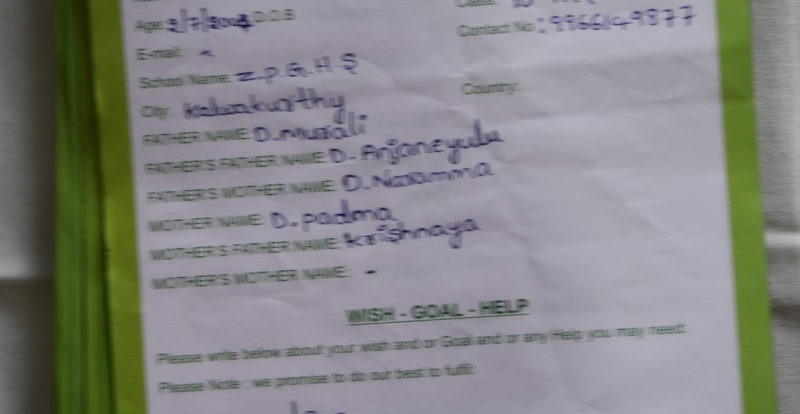 Age: 2/7/2003 D.O.B
Contact No: 9966149877
E-mail: -
School Name: Z.P.G.H.S
City: Kalwakurthy Country:
FATHER NAME: D.Murali
FATHER'S FATHER NAME: D. Anjaneyulu
FATHER'S MOTHER NAME: D. Narsamma
MOTHER NAME: D. padma
MOTHER'S FATHER NAME: krishnaya
MOTHER'S MOTHER NAME: -
WISH - GOAL - HELP
Please write below about your wish and or Goal and or any Help you may need:
Please Note : we promise to do our best to fulfil: